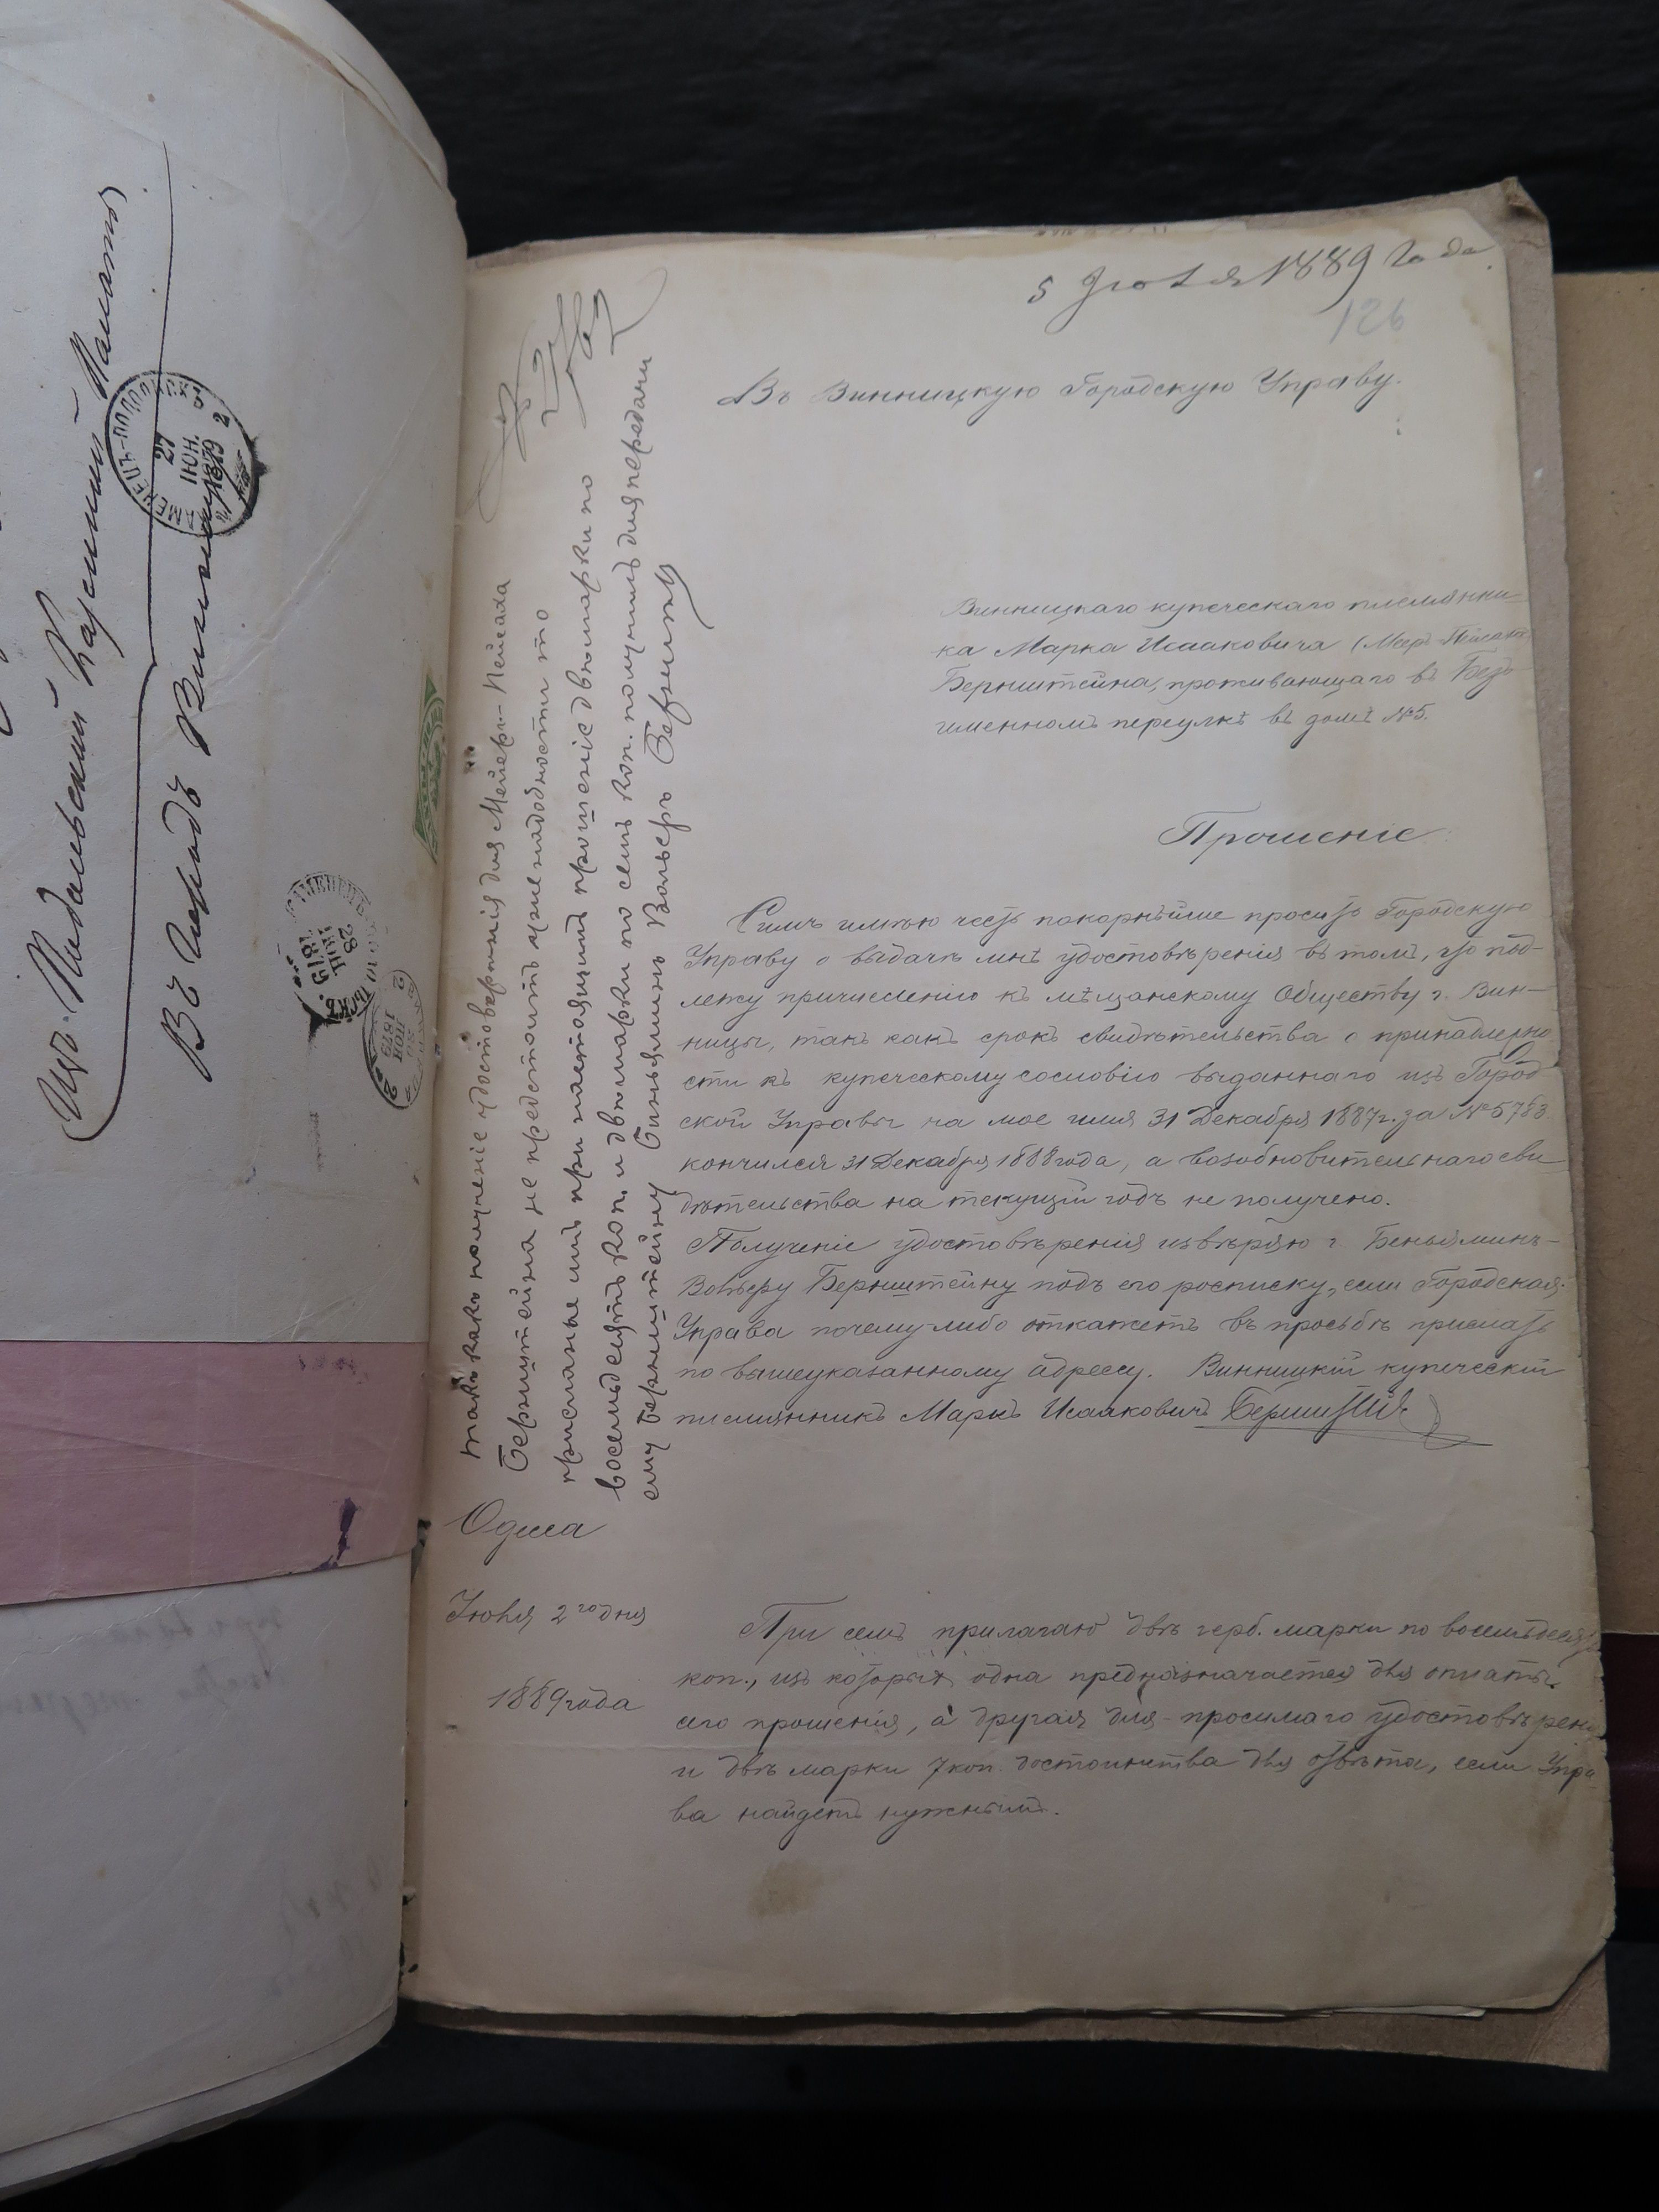 Изъ Подольской Казенной Палаты
Въ городъ Винницу
КАМЕНЕЦЪ-ПОДОЛЬСКЪ
27
ІЮН.
1879
2
28
1879
5 Іюля 1889 года
126
Въ Винницкую Городскую Управу.
Винницкаго купеческаго племянни-
ка Марка Исааковича (Меер
Бернштейна, проживающаго въ Безъ-
именномъ переулкѣ въ домѣ №5.
Прошеніе
Симъ имѣю честь покорнѣйше просить Городскую
Управу о выдачѣ мнѣ удостовѣренія въ томъ, что под-
лежу причисленію къ мѣщанскому Обществу г. Вин-
ницы, такъ какъ срокъ свидѣтельства о принадлежно
сти къ купеческому сословію выданнаго изъ Город
ской Управы на мое имя 31 Декабря 1887г. за №5783
кончился 31 Декабря 1888 года, а возобновительнаго сви
дѣтельства на текущій годъ не получено.
Полученіе удостовѣренія извѣряю г. Беньяминъ-
Вольфу Бернштейну подъ его росписку, если Городская
Управа почему-либо откажетъ въ просьбѣ прислать
по вышеуказанному адресу. Винницкій купеческій
племянникъ Маркъ Исааковичъ Бернштейнъ
Одесса
Іюля 2го дня
1889 года
При семъ прилагаю двѣ герб. марки по восемьдесятъ
коп., изъ которыхъ одна предназначается для оплаты
сего прошенія, а другая для просимаго удостовѣрен
и двѣ марки 7 коп. достоинства для отвѣта, если Упра-
ва найдетъ нужнымъ.
такъ какъ полученіе удостовѣренія для Мейеръ-Пейсаха
Бернштейна не предстоитъ уже надобности то
присланые имъ при настоящимъ прошеніе двѣ марки по
восемьдесятъ коп. и двѣ марки по семь коп. получилъ для передачи
ему Бернштейну Биньяминъ Вольфъ